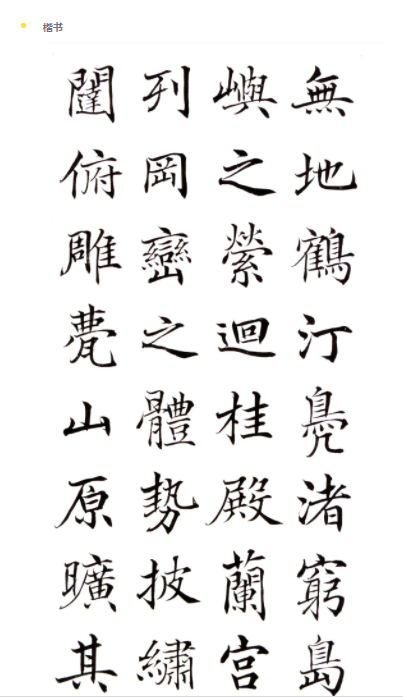 楷书
無地鶴汀鳧渚窮島
嶼之縈迴桂殿蘭宮
列岡巒之體勢披繡
闥俯雕甍山原曠其